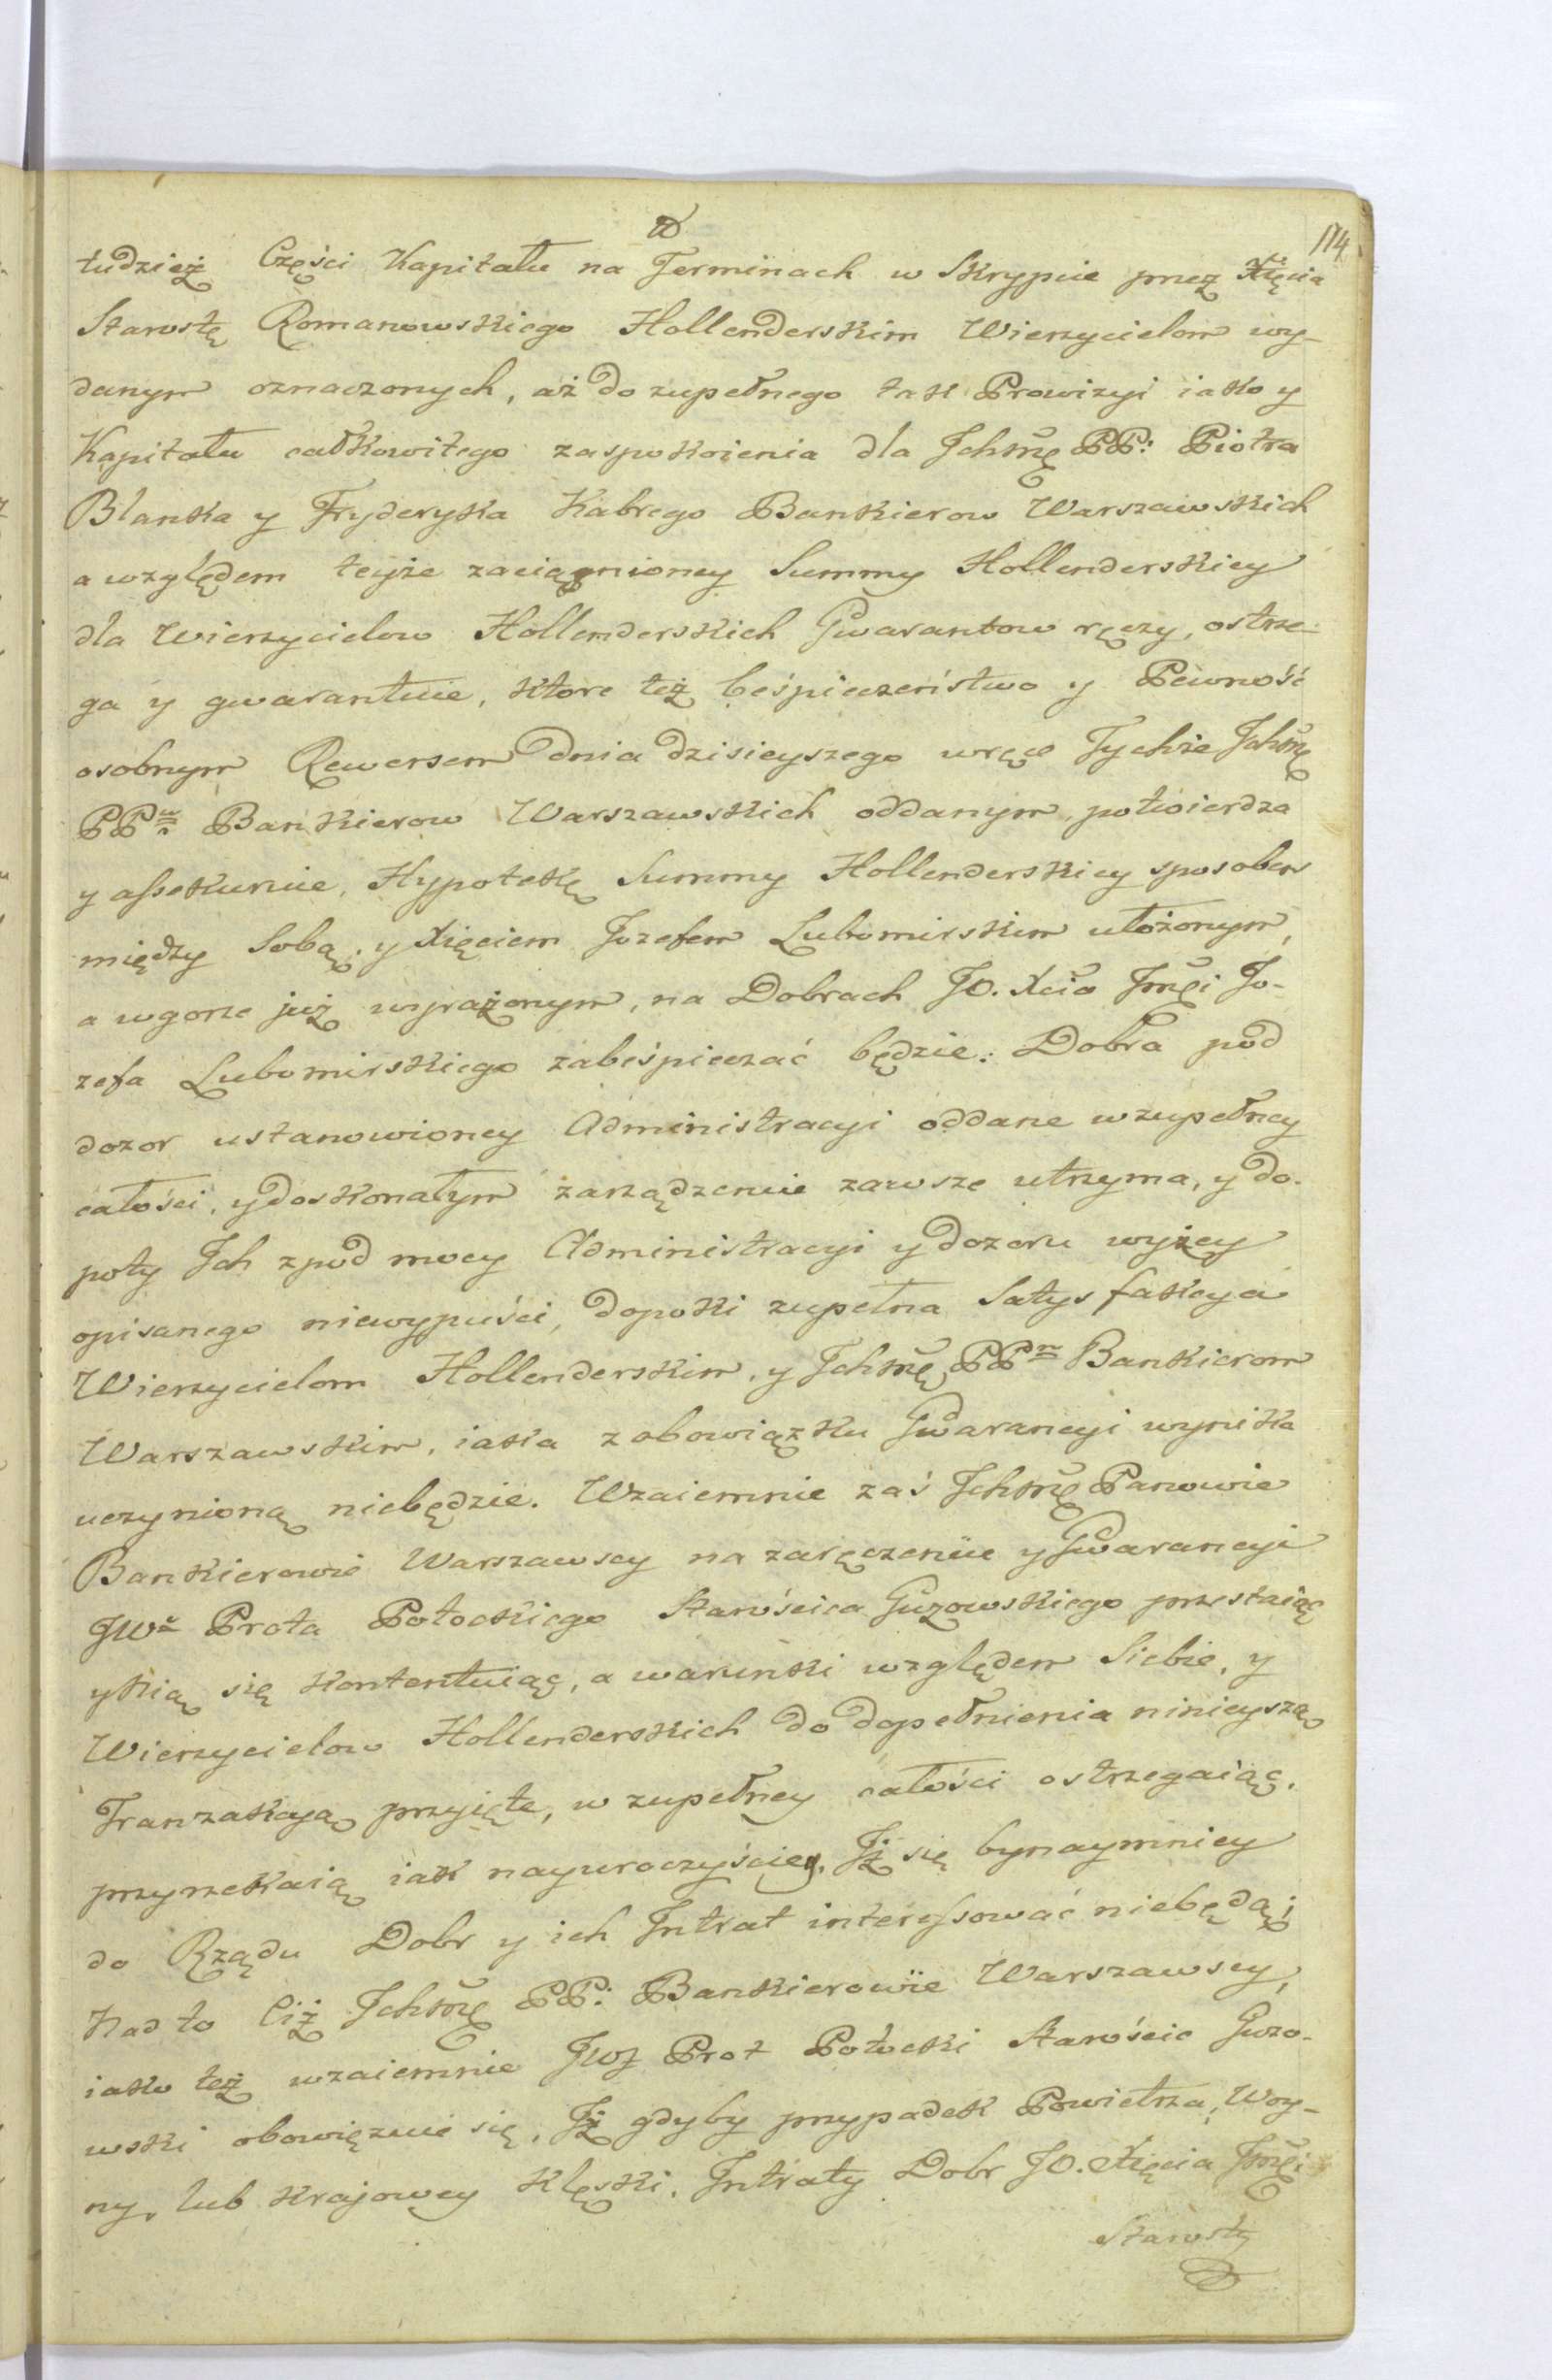 114
tudzież Części Kapitału na Terminach w Skrypcie przez Xięcia
Starostę Romanowskiego Hollenderskim Wierzycielom wy-
danym oznaczonych, aż do zupełnego tak Prowizyi iako y
Kapitału całkowitego zaspokoienia dla Ichmę PP: Piotra
Blanka y Fryderyka Kabrego Bankierow Warszawskich
a względem teyże zaciągnioney Summy Hollenderskiey
dla Wierzycielow Hollenderskich Gwarantow ręczy, ostrze-
ga y gwarantuie, ktore też beśpieczeństwo y Pewność
osobnym Rewersem dnia dzisieyszego wręce Tychże Ichmę
PPw Bankierow Warszawskich oddanym, potwierdza
y assekuruie, Hypotekę Summy Hollenderskiey sposobem
między Sobą, y Xięciem Jozefem Lubomirskim ułożonym,
a wgorze już wyrażonym, na Dobrach JO. Xcia Jmci Jo-
zefa Lubomirskiego zabeśpieczać będzie: Dobra pod
dozor ustanowioney Administracyi oddane w zupełney
całości, y doskonałym zarządzeniu zawsze utrzyma, y do-
poty Ich zpod mocy Administracyi y dozoru wyżey
opisanego niewypuści, dopoki zupełna Satysfakcya
Wierzycielom Hollenderskim, y Ichmę PPm Bankierom
Warszawskim, iaka z obowiązku Gwarancyi wynika
uczynioną niebędzie. Wzaiemnie zaś Ichmę Panowie
Bankierowie Warszawscy na zaręczeniu y Gwarancyi
JWo Prota Potockiego Starościca Guzowskiego przestaiąc
y Nią się kontentuiąc, a warunki względem Siebie, y
Wierzycielow Hollenderskich do dopełnienia ninieyszą
Tranzakcyą przyięte, w zupełney całości ostrzegaiąc,
przyrzekaią iak nayuroczyściey, Iż się bynaymniey
do Rządu Dobr y ich Intrat interessować niebędą;
Nad to Ciż Ichmę PP: Bankierowie Warszawscy,
iako też wzaiemnie JWJ Prot Potocki Starościc Guzo-
wski obowięzuie się, Iż gdyby przypadek Powietrza, Woy-
ny, lub krajowey Klęski, Intraty Dobr JO. Xięcia Jmci
Starosty